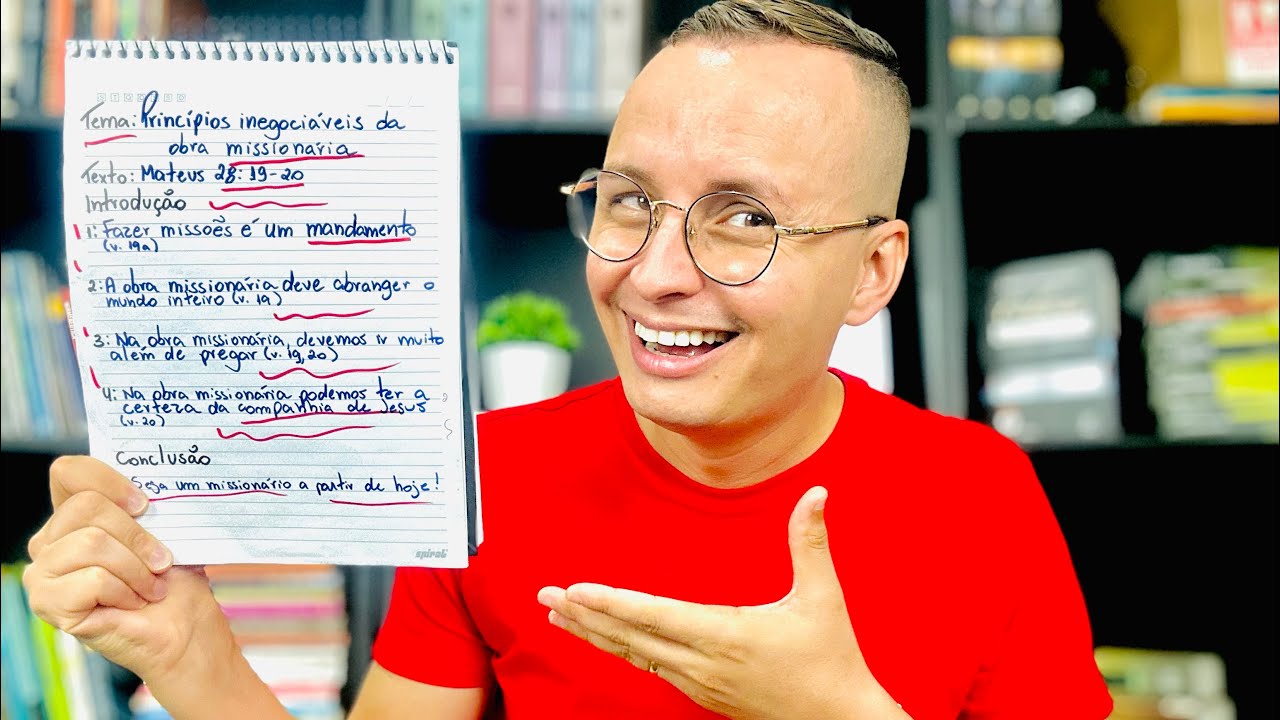 Tema: Princípios inegociáveis da
obra missionária
Texto: Mateus 28:19-20
Introdução
1: Fazer missões é um mandamento
(v. 19a)
2: A obra missionária deve abranger o
mundo inteiro (v. 19)
3: Na obra missionária, devemos ir muito
além de pregar (v. 19, 20)
4: Na obra missionária podemos ter a
certeza da companhia de Jesus
(v. 20)
Conclusão
Seja um missionário a partir de hoje!
spiral